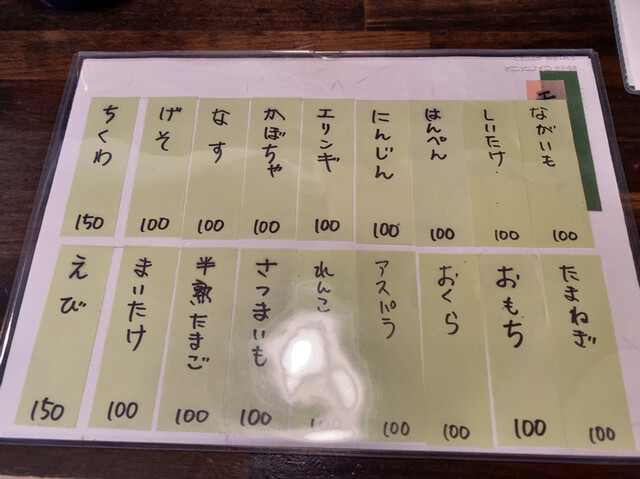 ながいも 100
しいたけ 100
はんぺん 100
にんじん 100
エリンギ 100
かぼちゃ 100
なす 100
げそ 100
ちくわ 150
たまねぎ 100
おもち 100
おくら 100
アスパラ 100
れんこ
さつまいも 100
半熟たまご 100
まいたけ 100
えび 150